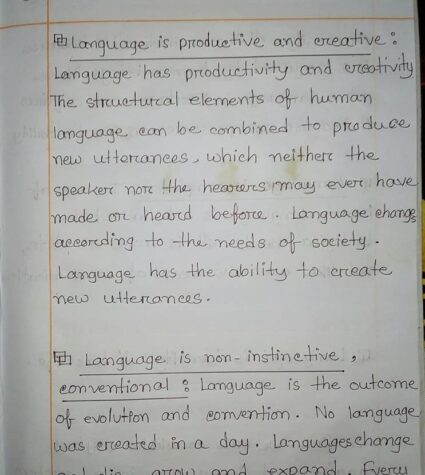 Language is productive and creative :
Language has productivity and creativity
The structural elements of human
language can be combined to produce
new utterances, which neither the
speaker nor the hearers may ever have
made or heard before. Language change
according to the needs of society.
Language has the ability to create
new utterances.
Language is non-instinctive,
conventional : Language is the outcome
of evolution and convention. No language
was created in a day. Languages change
and die, grow and expand. Every